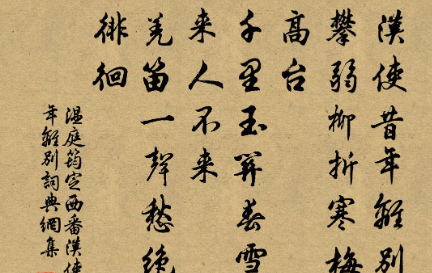 漢使昔年離別
攀弱柳折寒梅
高台
千里玉關春雪
来人不来
羌笛一聲愁絶
徘徊
温庭筠定西番漢使
年離別詞典網集